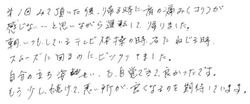 第1回みて頂いた後、帰る時に肩の痛みとコリが
感じない…と思いながら運転して帰りました。
朝いつもしているテレビ体操の時、右にねじる時、
スムーズに回すのにビックリでました。
自分の立ち姿勢も、も、自覚できて良かったです。
もう少し続けて、悪い所が良くなるのを期待しています。